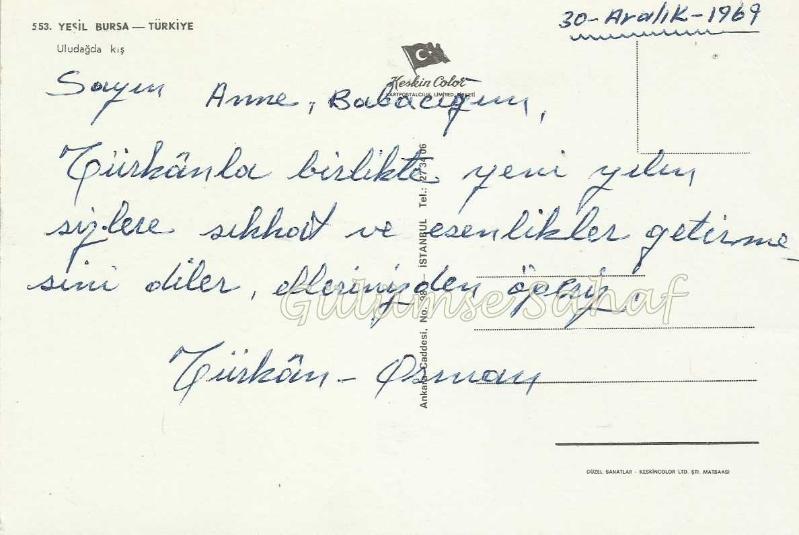 553. YEŞİL BURSA — TÜRKİYE
Uludağda kış
30-Aralık-1969
Keskin Color
KARTPOSTALCILIK LİMİTED ŞİRKETİ
Sayın Anne, Babacığım,
Türkânla birlikte yeni yılın
sizlere sıhhat ve esenlikler getirme-
sini diler, ellerinizden öperiz.
Türkân - Osman
Ankara Caddesi, No. 98 — İSTANBUL Tel.: 27 34 06
Gülümse Sahaf
GÜZEL SANATLAR - KESKİNCOLOR LTD. ŞTİ. MATBAASI